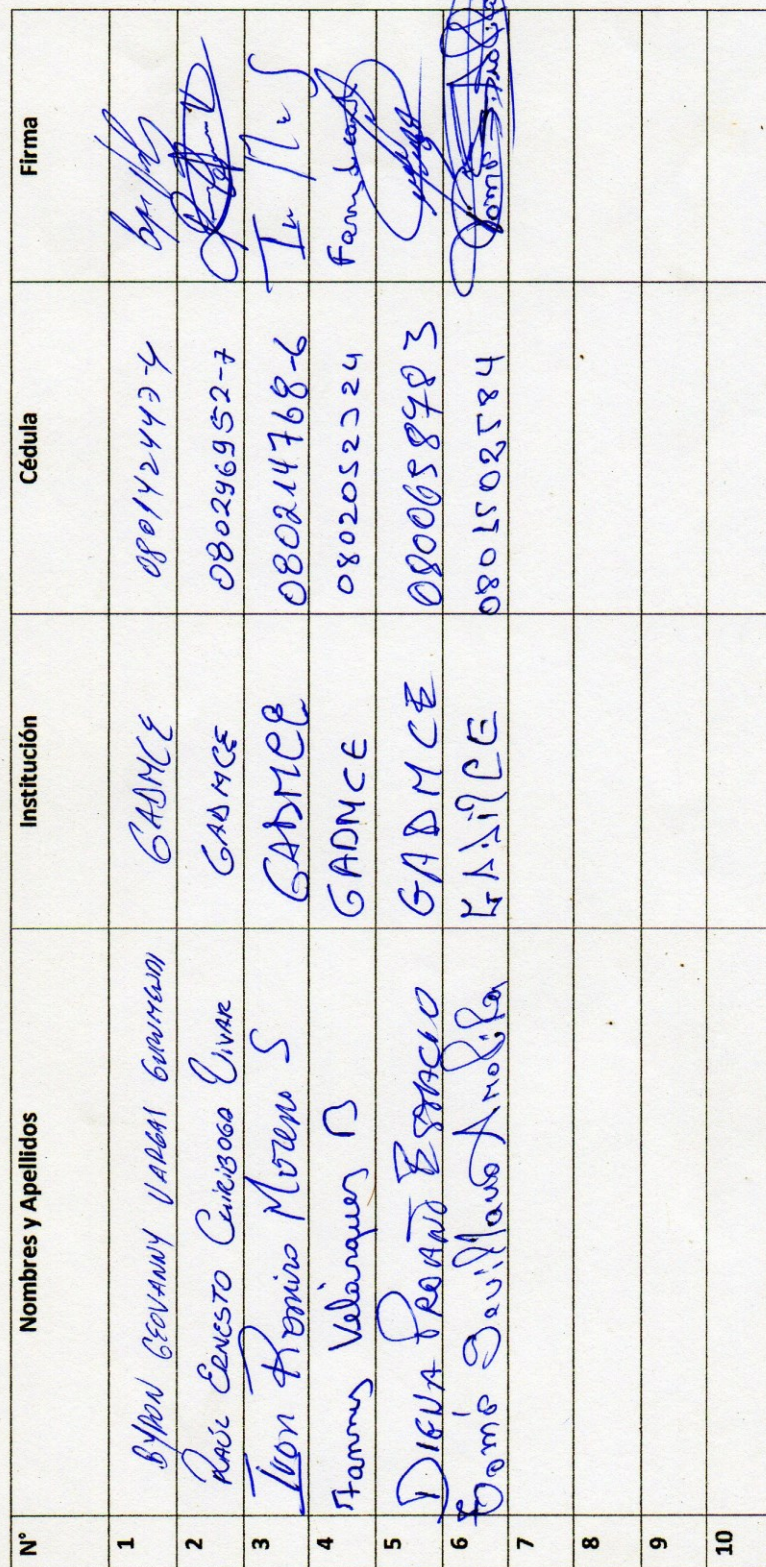 N° Nombres y Apellidos Institución Cédula Firma
1 BYRON GEOVANNY VARGAS GURUMENDI GADMCE 080142443-4
2 RAÚL ERNESTO CHIRIBOGA VIVAR GADMCE 080296952-7
3 Ivon Romiro Moreno S GADMCE 080214768-6
4 Fannny Velásquez B GADMCE
5 DIGNA PROAÑO ESTACIO GADMCE 0800658783
6 GADMCE 0801502584
7
8
9
10